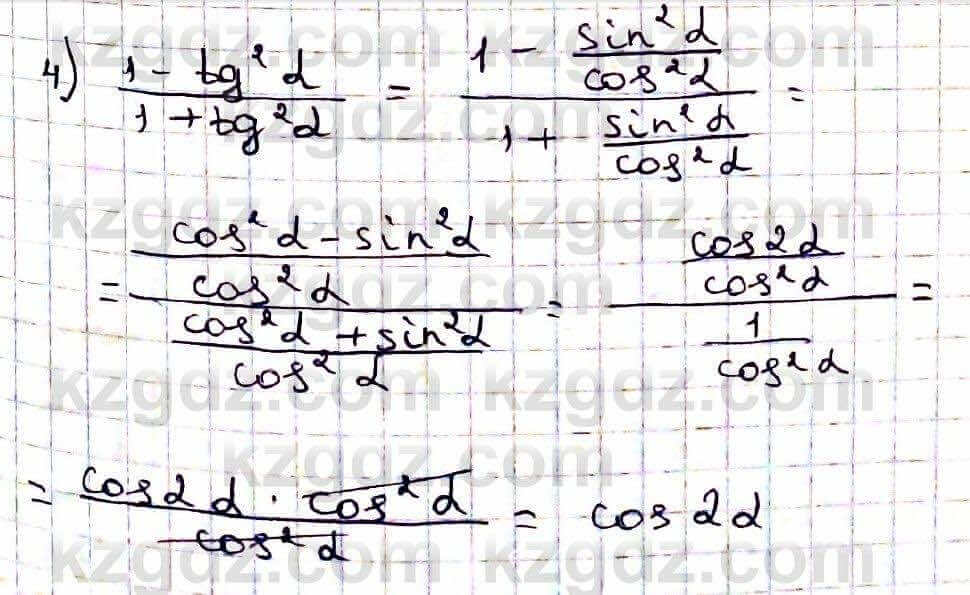 4) (1 - tg²α)/(1 + tg²α) = (1 - sin²α/cos²α)/(1 + sin²α/cos²α) =
= ((cos²α - sin²α)/cos²α)/((cos²α + sin²α)/cos²α) = (cos2α/cos²α)/(1/cos²α) =
= (cos2α · cos²α)/cos²α = cos2α
kzgdz.com